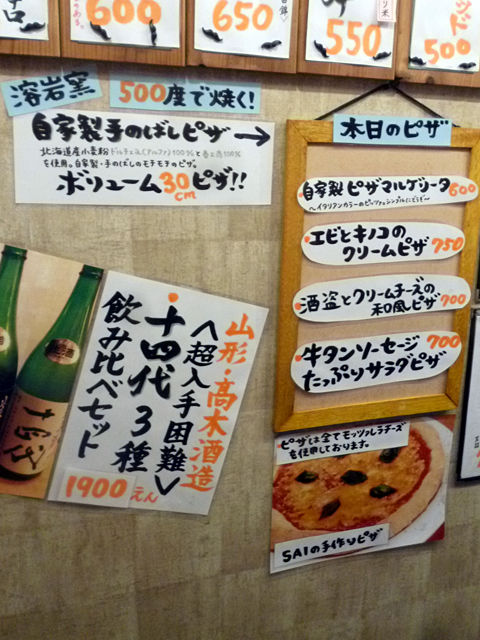 600
650
550
500
溶岩窯
500度で焼く!
自家製手のばしピザ→
北海道産小麦粉ドルチェ(アルファ)100%と春よ恋100%
を使用。自家製・手のばしのモチモチのピザ。
ボリューム30cmピザ!!
本日のピザ
・自家製ピザマルゲリータ600
〜イタリアンカラーのピッツァはシンプルにどうぞ〜
・エビとキノコの
クリームピザ750
・酒盗とクリームチーズの
和風ピザ700
・牛タンソーセージ
たっぷりサラダピザ700
山形・高木酒造
<超入手困難>
・十四代3種
飲み比べセット
1900えん
十四代
ピザは全てモッツァレラチーズ
を使用しております。
SAIの手作りピザ